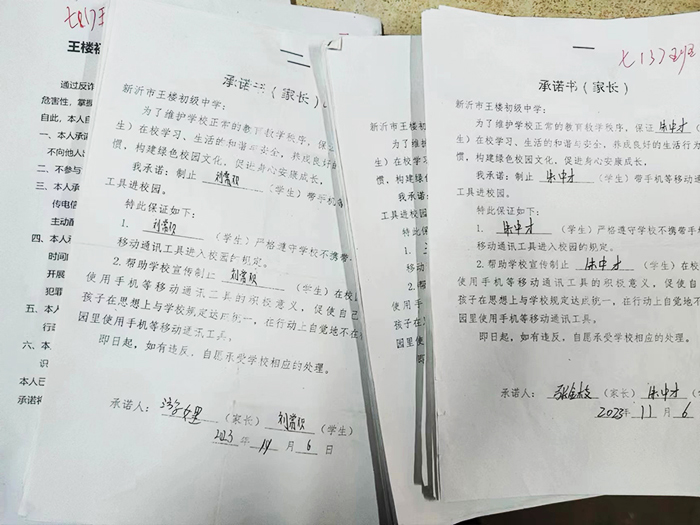 王楼初
通过反诈
危害性，掌握
自此，本人自
一、本人承诺
不向他人
二、不参与
三、本人承
传电信
主动配
四、本人
时间
开展
犯罪
五、本人
行
六、本
识
本人已
承诺
承诺书（家长）
新沂市王楼初级中学：
为了维护学校正常的教育教学秩序，保证
生）在校学习、生活的和谐与安全，养成良好的
惯，构建绿色校园文化，促进身心安康成长，
我承诺：制止 刘常玖 （学生）带手机等
工具进校园。
特此保证如下：
1. 刘常玖 （学生）严格遵守学校不携带
移动通讯工具进入校园的规定。
2.帮助学校宣传制止 刘常玖 （学生）在校
使用手机等移动通讯工具的积极意义，促使自己
孩子在思想上与学校规定达成统一，在行动上自觉地不在
园里使用手机等移动通讯工具。
即日起，如有违反，自愿承受学校相应的处理。
承诺人： （家长） 刘常玖 （学生）
2023 年 11 月 6 日
生）
惯，构
工具进
1.
移动
2.
使用
孩子
园里
七13班
承诺书（家长）
新沂市王楼初级中学：
为了维护学校正常的教育教学秩序，保证 朱中才
生）在校学习、生活的和谐与安全，养成良好的生活行为
惯，构建绿色校园文化，促进身心安康成长，
我承诺：制止 朱中才 （学生）带手机等移动通
工具进校园。
特此保证如下：
1. 朱中才 （学生）严格遵守学校不携带手机
移动通讯工具进入校园的规定。
2.帮助学校宣传制止 朱中才 （学生）在校园
使用手机等移动通讯工具的积极意义，促使自己
孩子在思想上与学校规定达成统一，在行动上自觉地不
园里使用手机等移动通讯工具。
即日起，如有违反，自愿承受学校相应的处理。
承诺人： 张金枝 （家长） 朱中才 （学
2023年 11 月 6